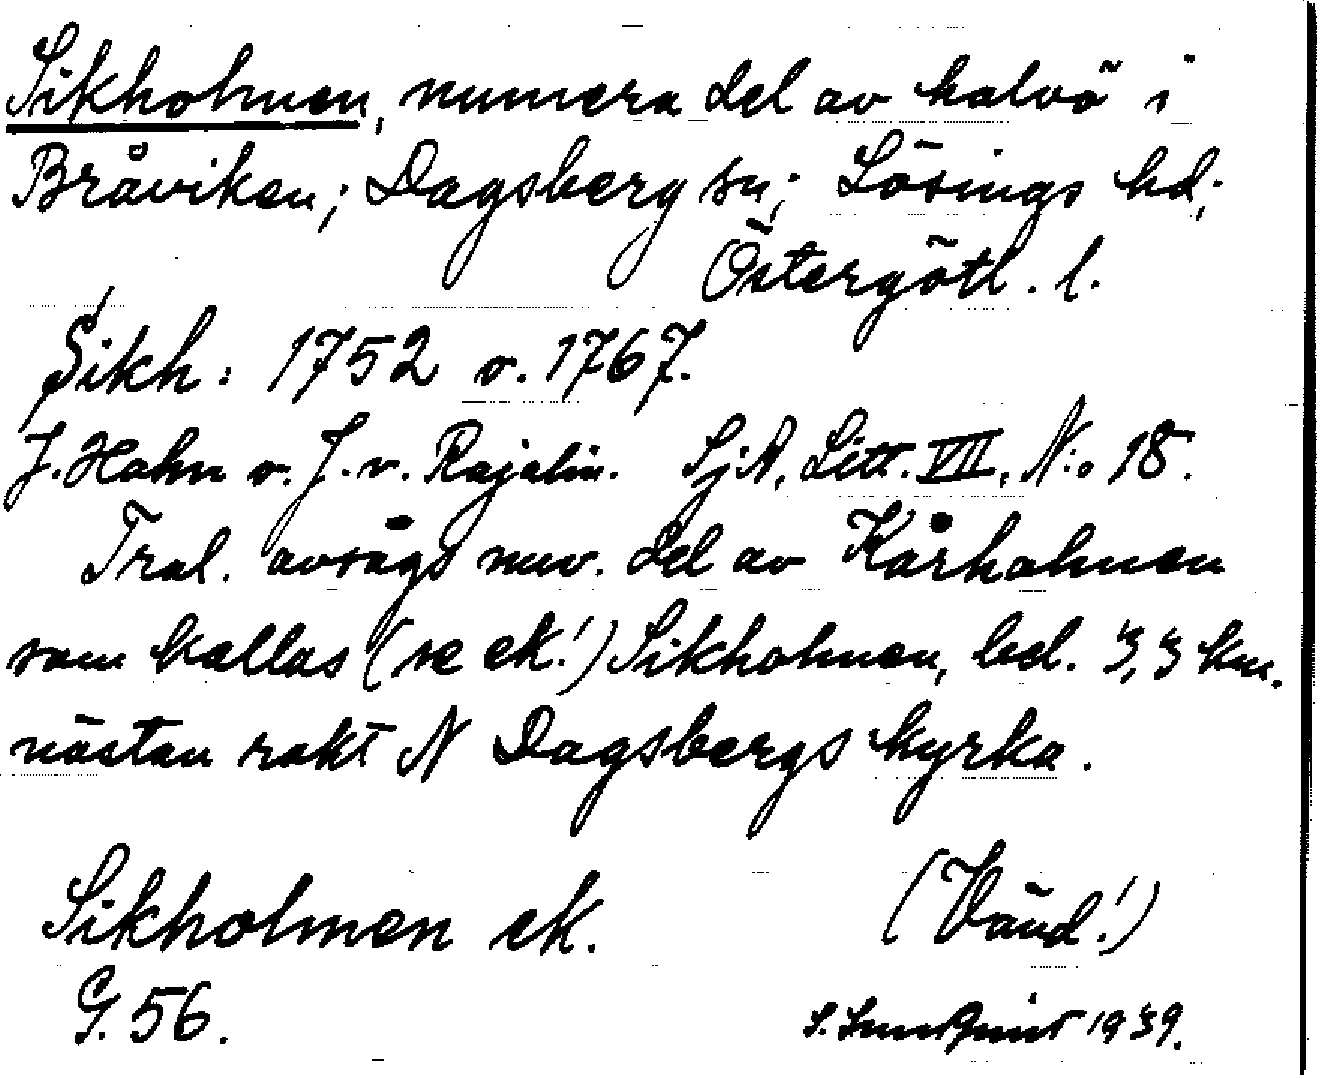 Sikholmen, numera del av halvö i
Bråviken; Dagsberg sn; Lösings hd;
Östergötl. l.
Sikh: 1752 o. 1767.
J. Hahn o. J. v. Rajalin. SjA, Litt. VII, N:o 18.
Trol. avsågs nuv. del av Kårholmen
som kallas (se ek!) Sikholmen, bel. 3,3 km.
nästan rakt N Dagsbergs kyrka.
Sikholmen ek. (Vänd!)
G. 56.
S. 1939.